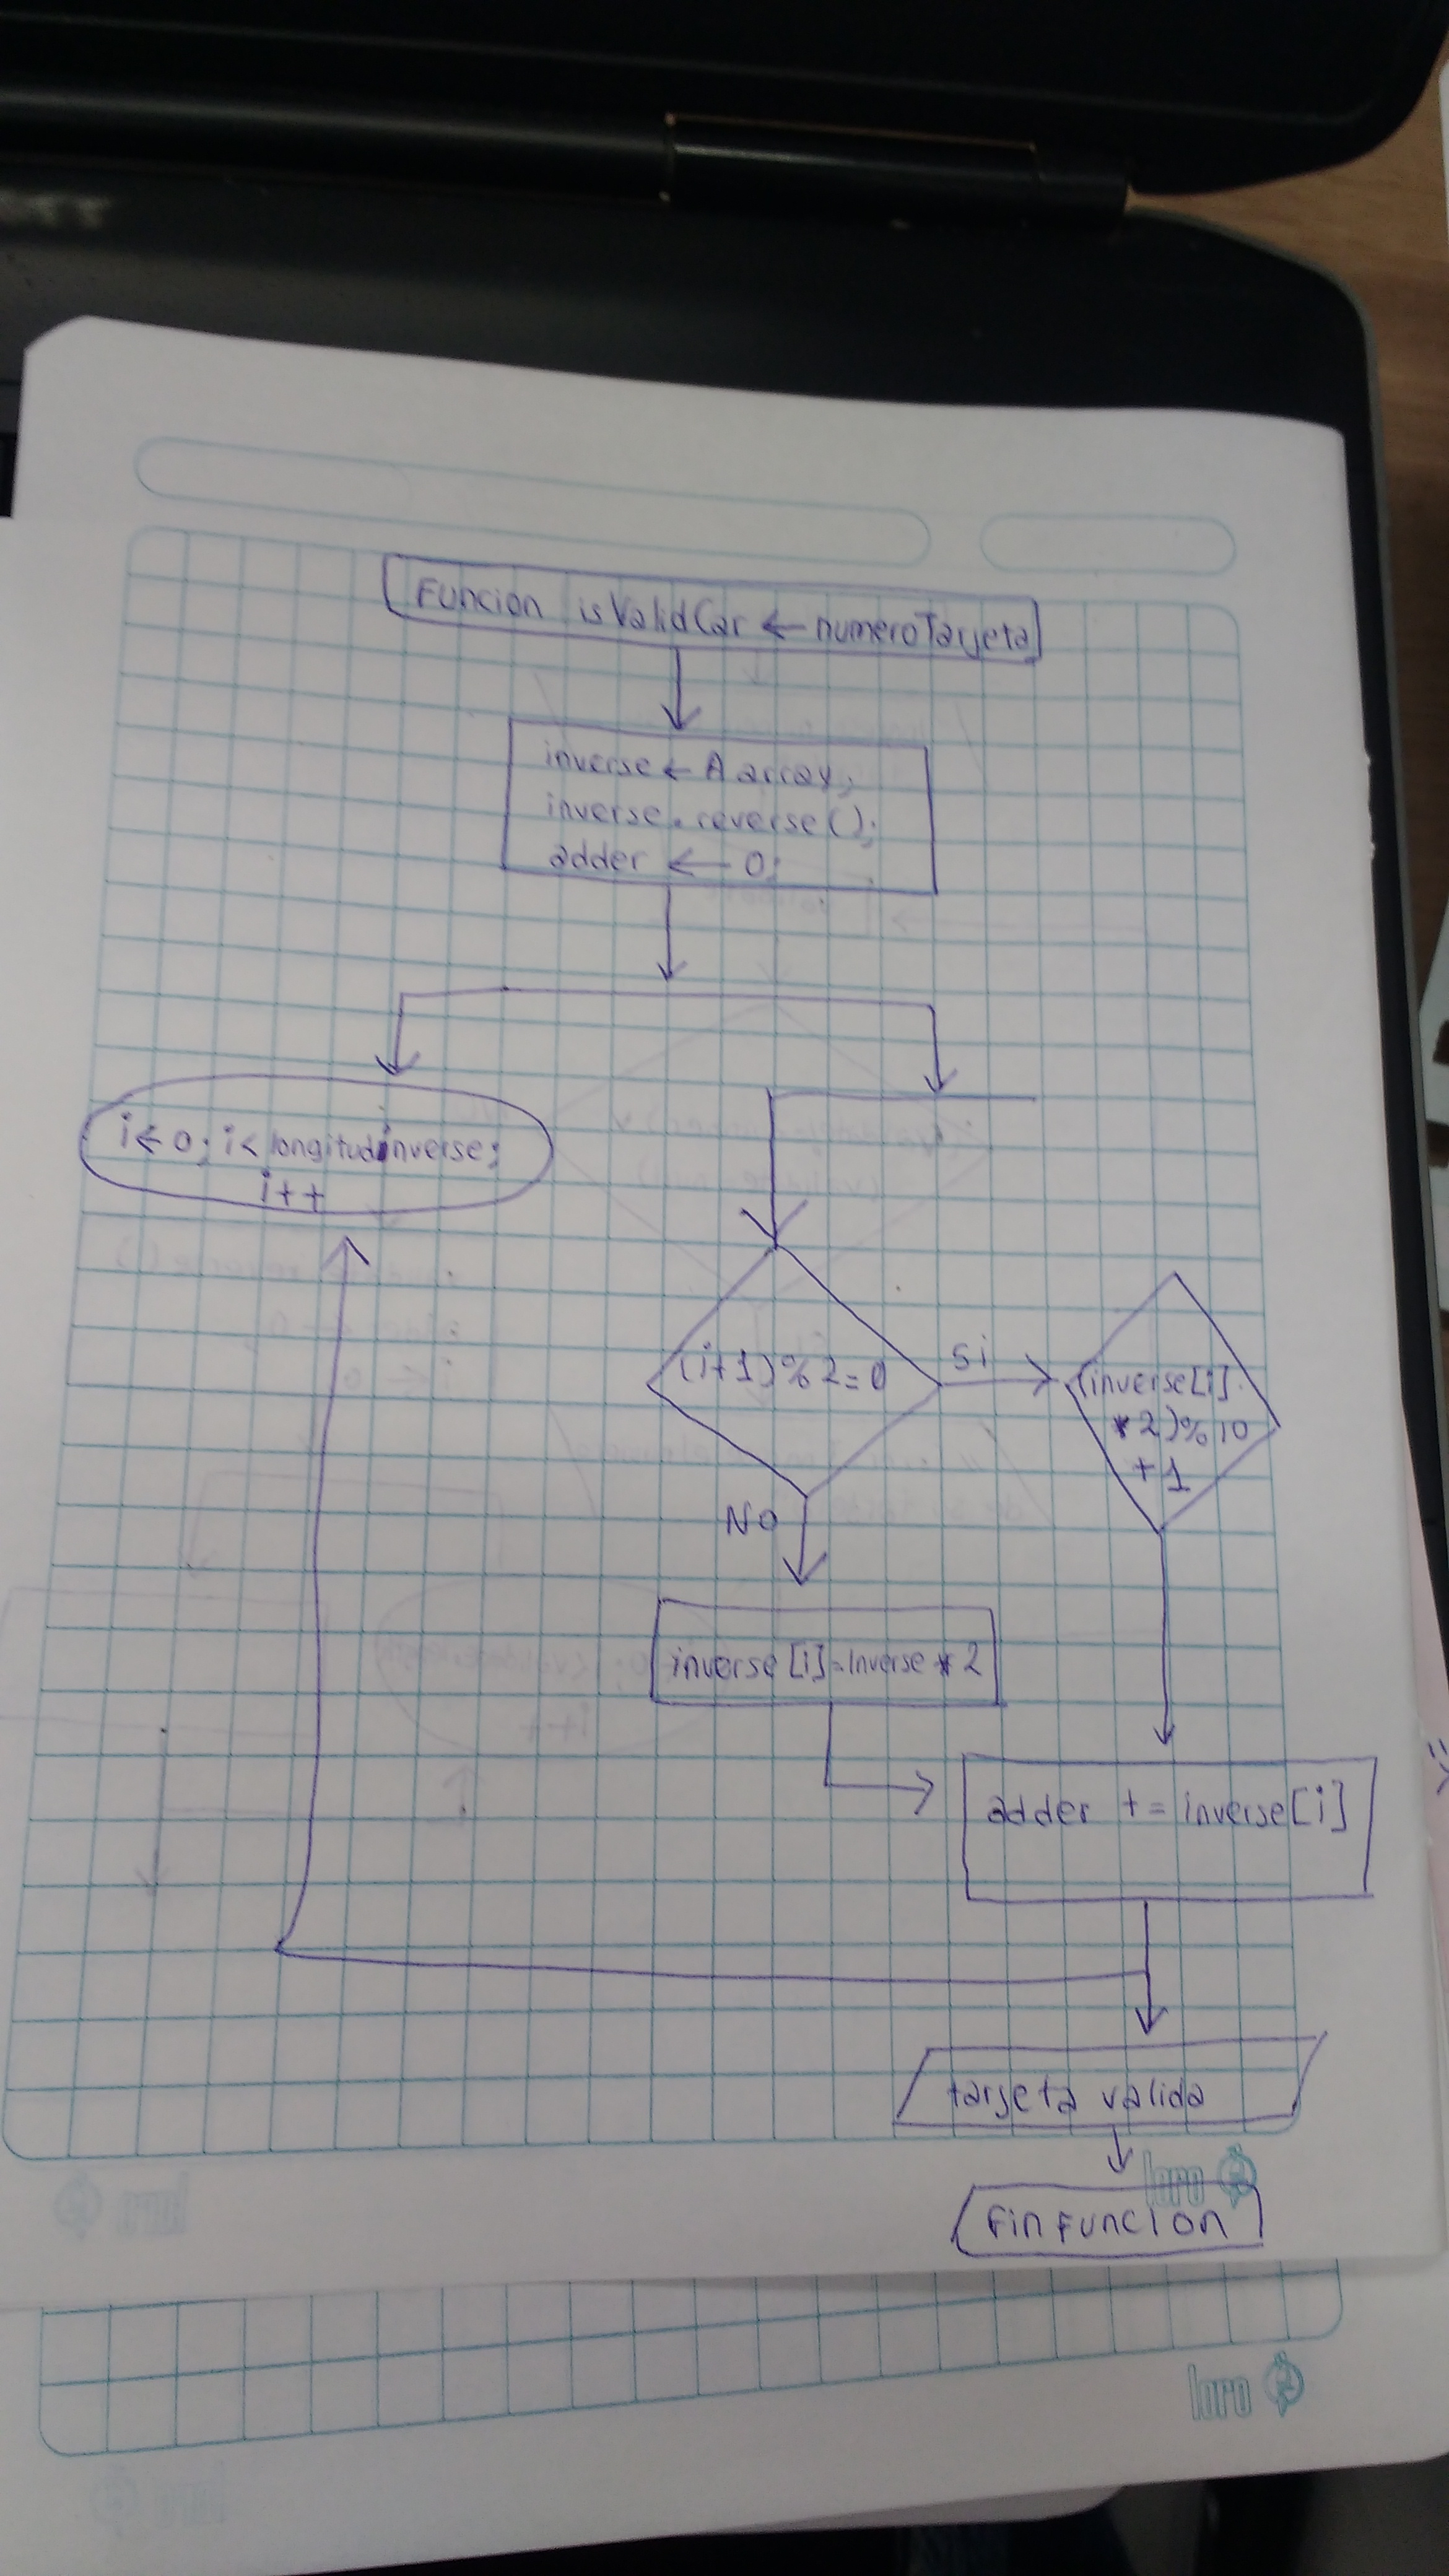 Funcion isValidCar ← numeroTarjeta
inverse ← A array;
inverse.reverse();
adder ← 0;
i ← 0; i < longitudinverse;
i++
(i+1)%2=0
Si
(inverse[i]
*2)%10
+1
No
inverse[i]=Inverse*2
adder += inverse[i]
tarjeta valida
Fin Funcion
loro
loro